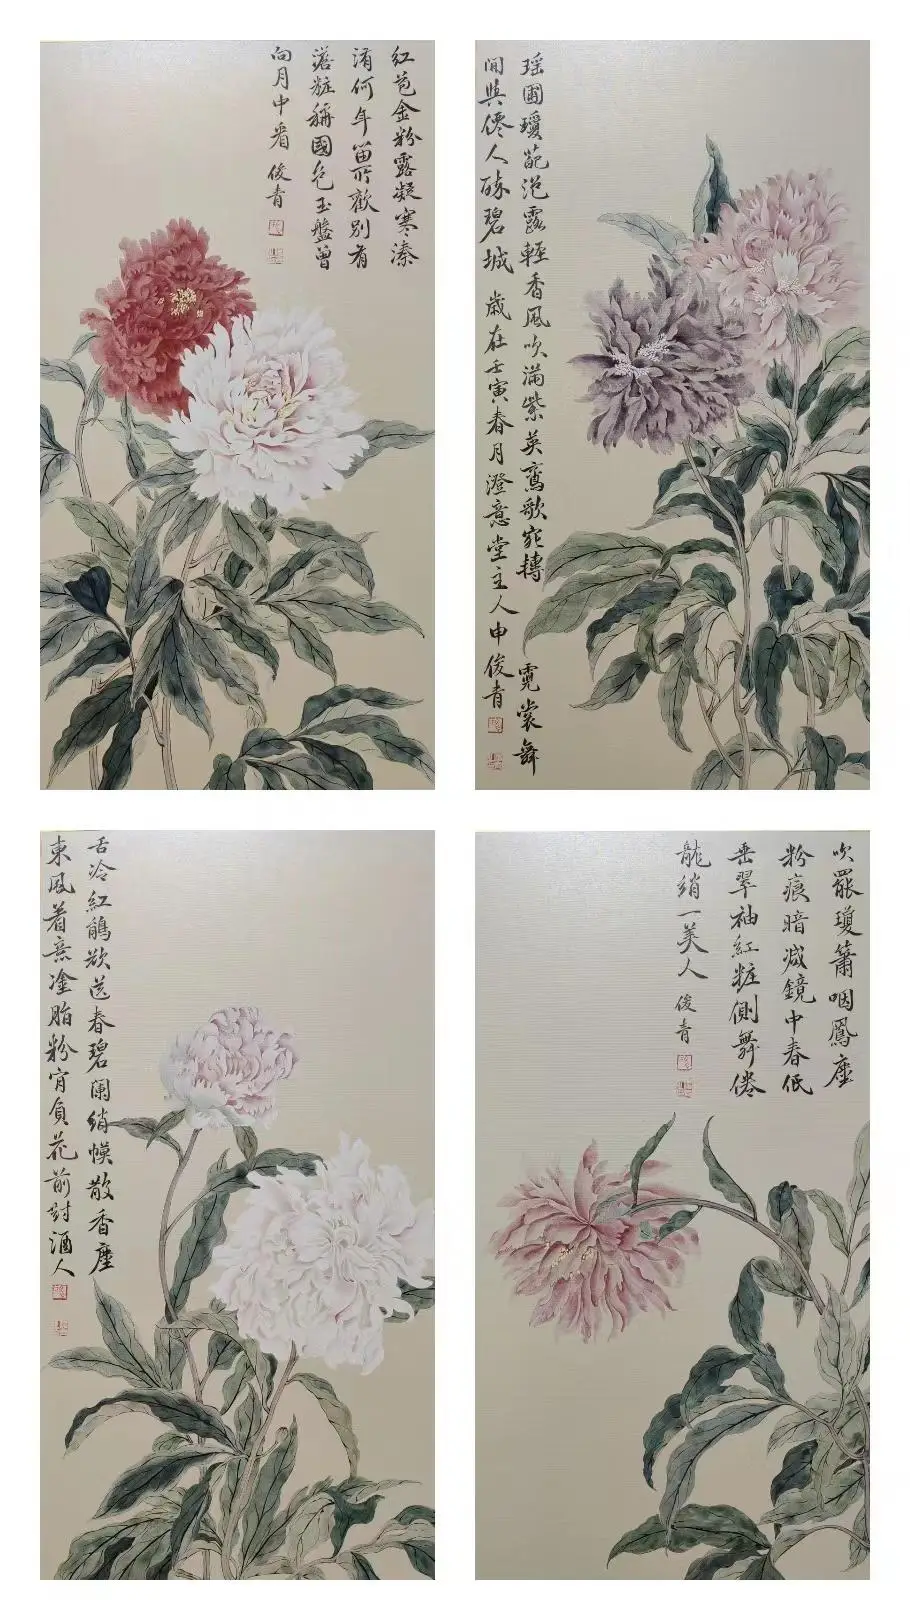 红苞金粉露凝寒溱
洧何年留所歡别有
澹粧稱國色玉盤曾
向月中看 俊青
瑶圃瓊葩浥露輕香風吹滿紫英鸞歌宛轉 霓裳舞
閒與僊人醉碧城 歲在壬寅春月澄意堂主人申俊青
舌冷紅鵑欲送春碧闌綃幙散香塵
東風着意塗脂粉肎負花前對酒人
吹罷瓊簫咽鳳塵
粉痕暗减鏡中春低
垂翠袖紅粧側舞倦
龍綃一美人 俊青